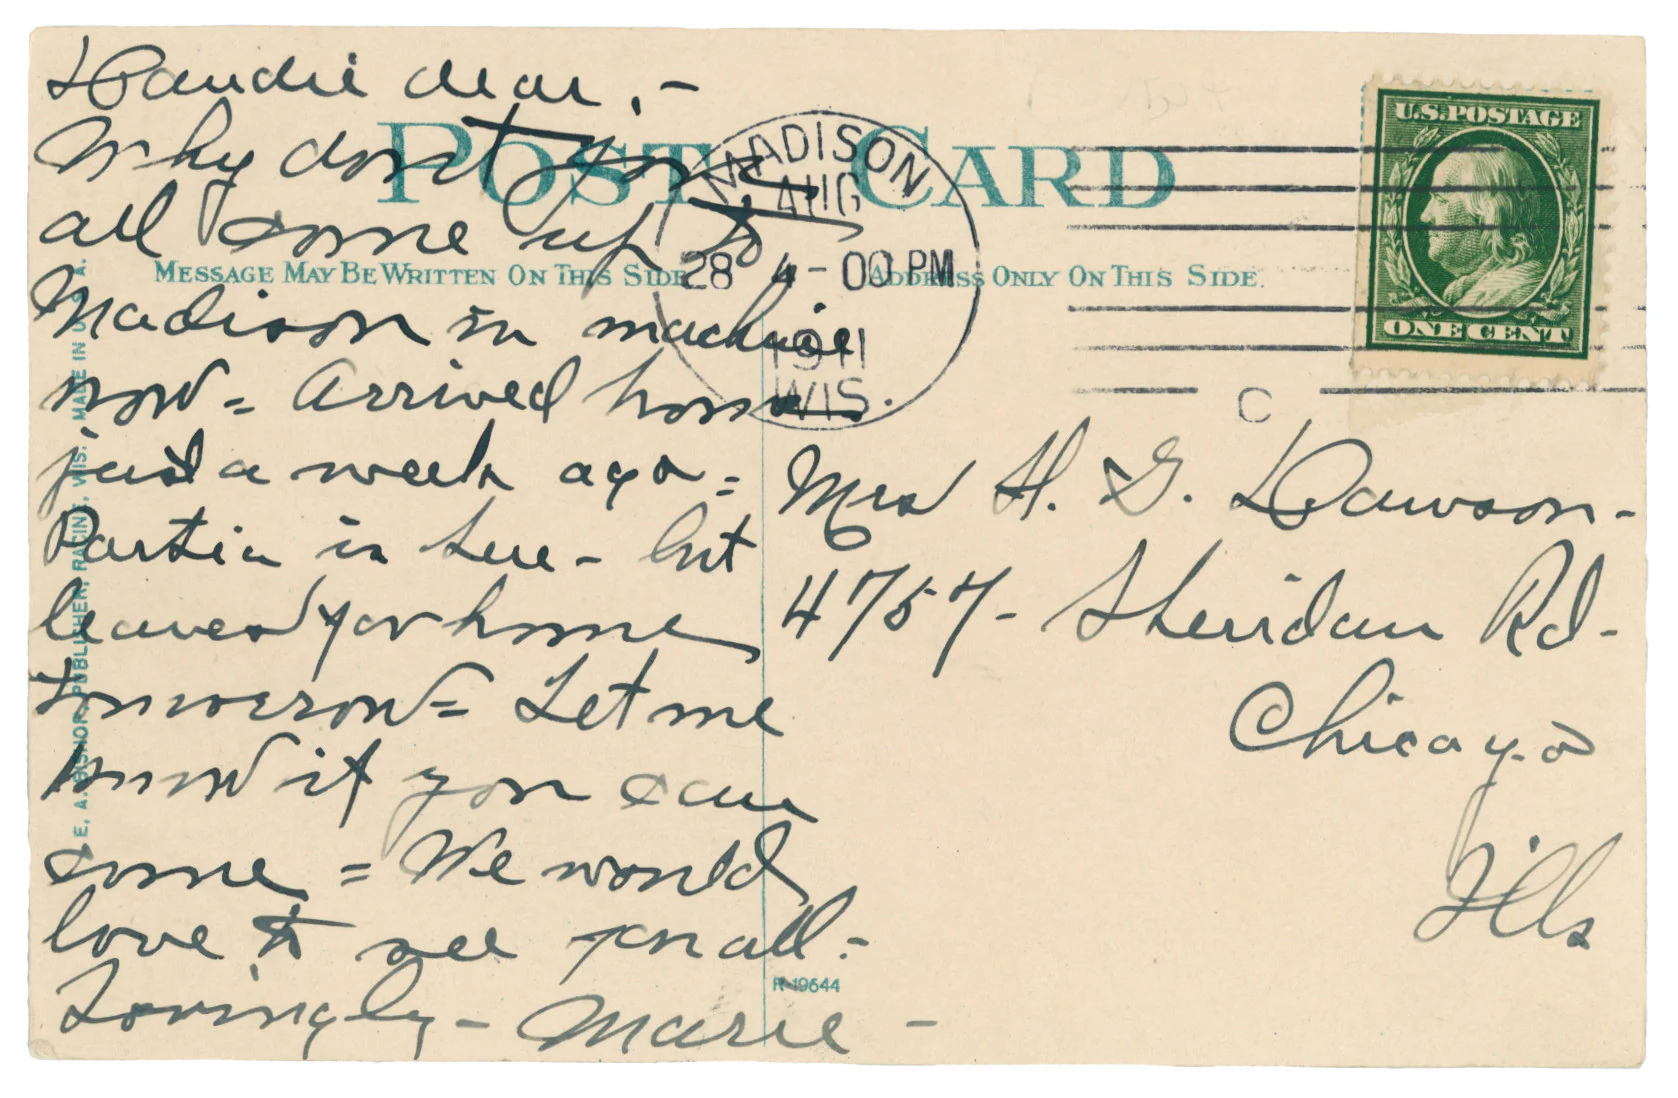 Daudie dear, -
Why don't you
all come up to
Madison in machine
now = Arrived home
just a week ago =
Portia is here - but
leaves for home
tomorrow = Let me
know if you can
come = We would
love to see you all -
Lovingly - Marie -
POST CARD
MESSAGE MAY BE WRITTEN ON THIS SIDE
ADDRESS ONLY ON THIS SIDE.
MADISON
AUG
28 4-00 PM
1911
WIS.
C
U.S. POSTAGE
ONE CENT
Mrs H. G. Dawson -
4757 - Sheridan Rd -
Chicago
Ills
E. A. BISHOP, PUBLISHER, RACINE, WIS. MADE IN U. S. A.
R-19644